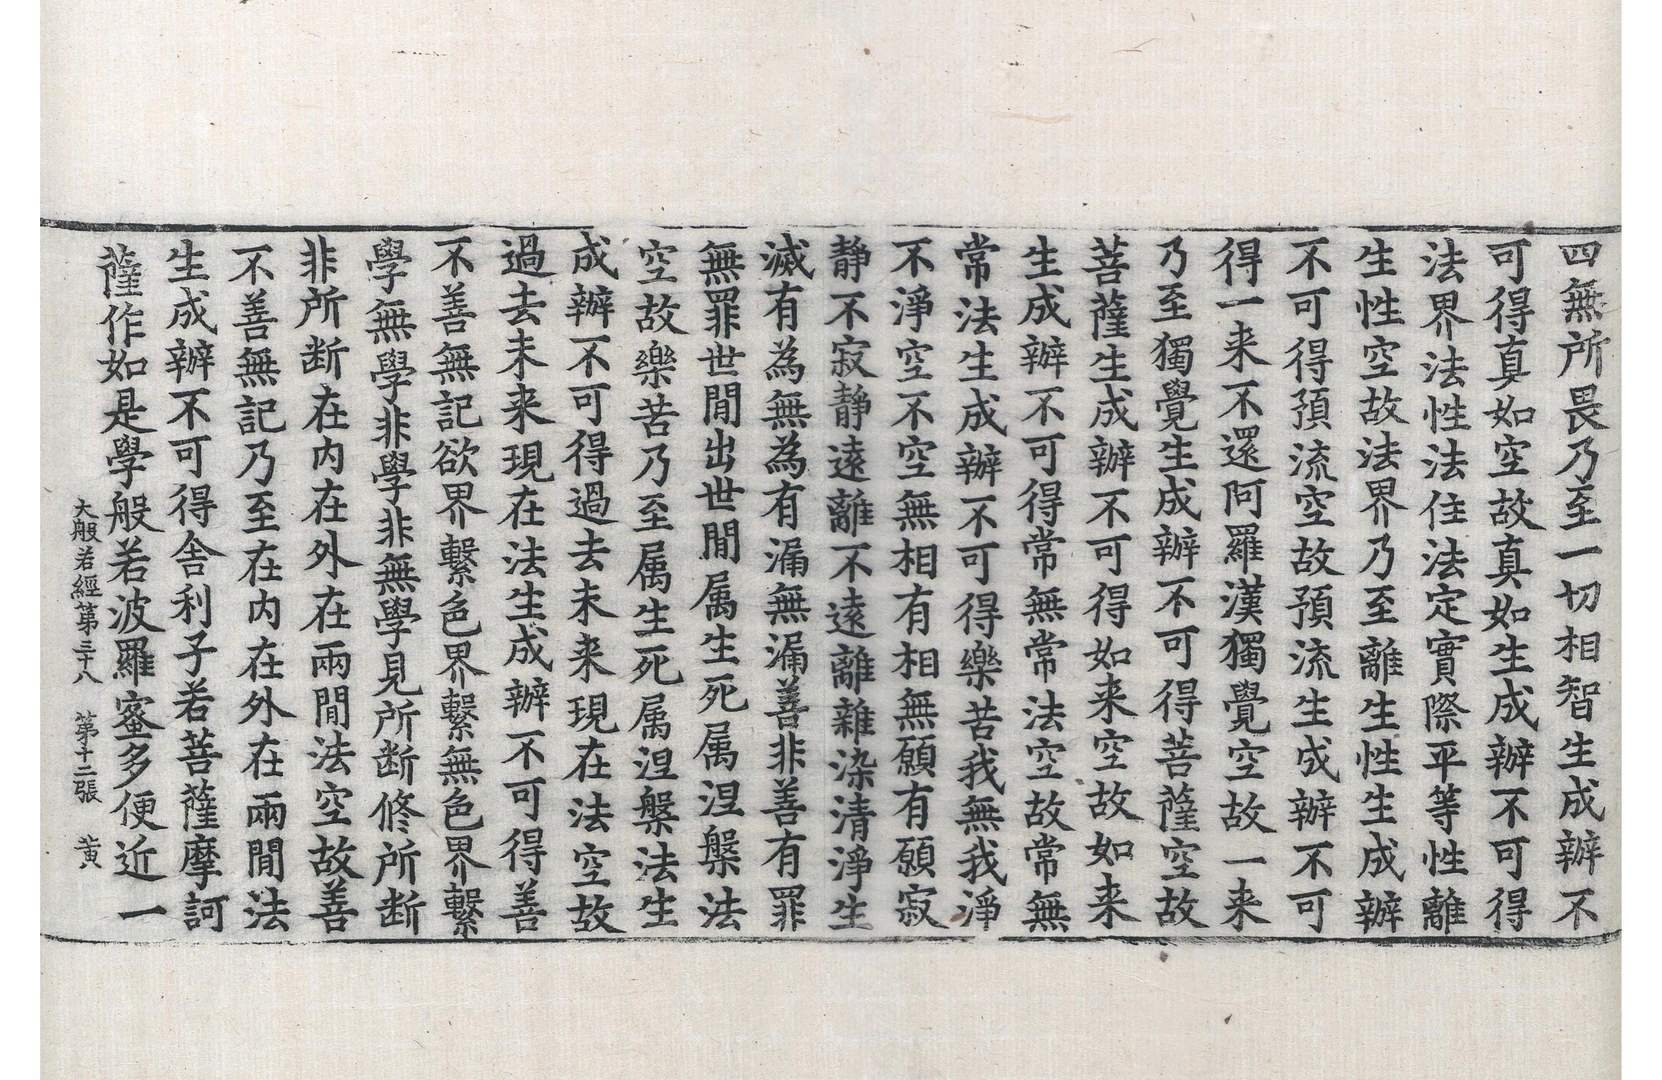 四無所畏乃至一切相智生成辦不
可得真如空故真如生成辦不可得
法界法性法住法定實際平等性離
生性空故法界乃至離生性生成辦
不可得預流空故預流生成辦不可
得一来不還阿羅漢獨覺空故一来
乃至獨覺生成辦不可得菩薩空故
菩薩生成辦不可得如来空故如来
生成辦不可得常無常法空故常無
常法生成辦不可得樂苦我無我淨
不淨空不空無相有相無願有願寂
靜不寂靜遠離不遠離雜染清淨生
滅有為無為有漏無漏善非善有罪
無罪世閒出世閒属生死属涅槃法
空故樂苦乃至属生死属涅槃法生
成辦不可得過去未来現在法空故
過去未来現在法生成辦不可得善
不善無記欲界繫色界繫無色界繫
學無學非學非無學見所断修所断
非所断在内在外在兩閒法空故善
不善無記乃至在内在外在兩閒法
生成辦不可得舍利子若菩薩摩訶
薩作如是學般若波羅蜜多便近一
大般若經第三十八　第十二張　黄